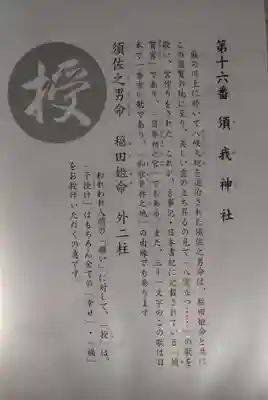 第十六番 須我神社
簸の川上に於いて八岐大蛇を退治された須佐之男命は、稲田姫命と共に
この須賀の地に至り、美しい雲の立ち昇るのを見て「八雲立つ……」の歌を
歌い、宮造りをされた。これが、古事記・日本書紀に記載されている「須
賀宮」であり「日本初之宮」でもある。また、三十一文字のこの歌は日
本で一番古い歌であり、「和歌発祥之地」の由縁でもあります
須佐之男命 稲田姫命 外二柱
授
われわれ人間の「願い」に対して、「授」は、
「子授け」はもちろん全ての「幸せ」・「福」
をお授けいただくの意です。